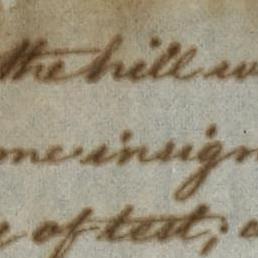 the hill w
me insign
of test;